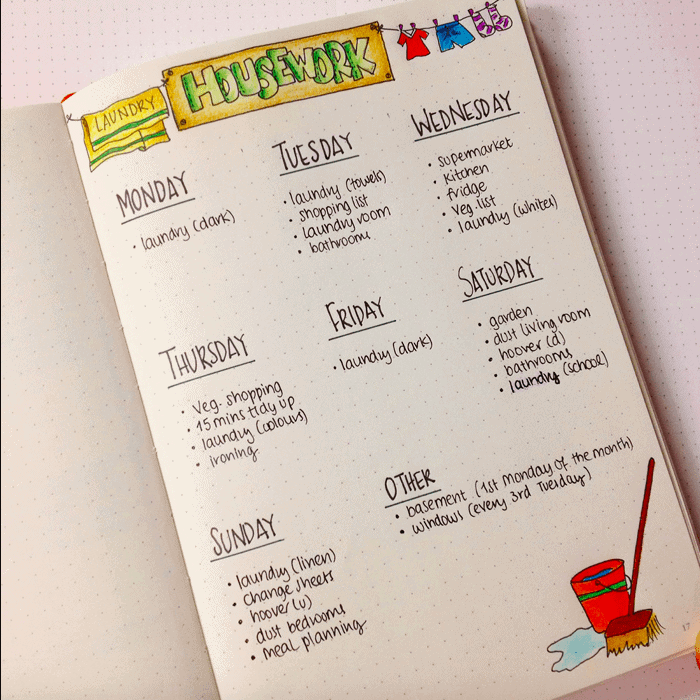 LAUNDRY
HOUSEWORK
MONDAY
• laundry (dark)
TUESDAY
• laundry (towels)
• shopping list
• laundry room
• bathrooms
WEDNESDAY
• supermarket
• kitchen
• fridge
• veg list
• laundry (whites)
THURSDAY
• Veg. shopping
• 15 mins tidy up
• laundry (colours)
• ironing
FRIDAY
• laundry (dark)
SATURDAY
• garden
• dust living room
• hoover (d)
• bathrooms
• laundry (school)
SUNDAY
• laundry (linen)
• change sheets
• hoover (u)
• dust bedrooms
• meal planning
OTHER
• basement (1st monday of the month)
• windows (every 3rd Tuesday)
17